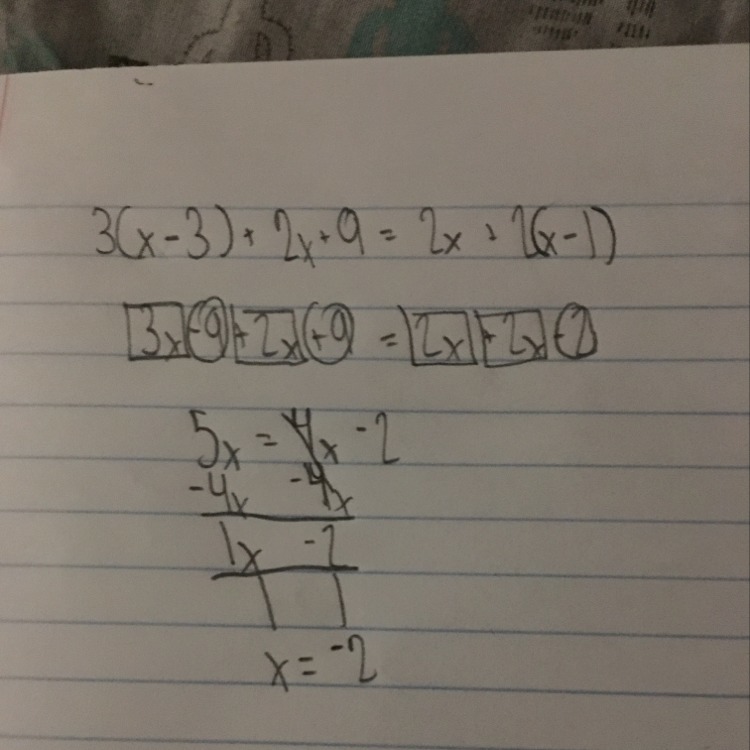 3(x-3)+2x+9=2x+2(x-1)
3x-9+2x+9=2x+2x-2
5x=4x-2
-4x -4x
1x -2
1 1
x=-2